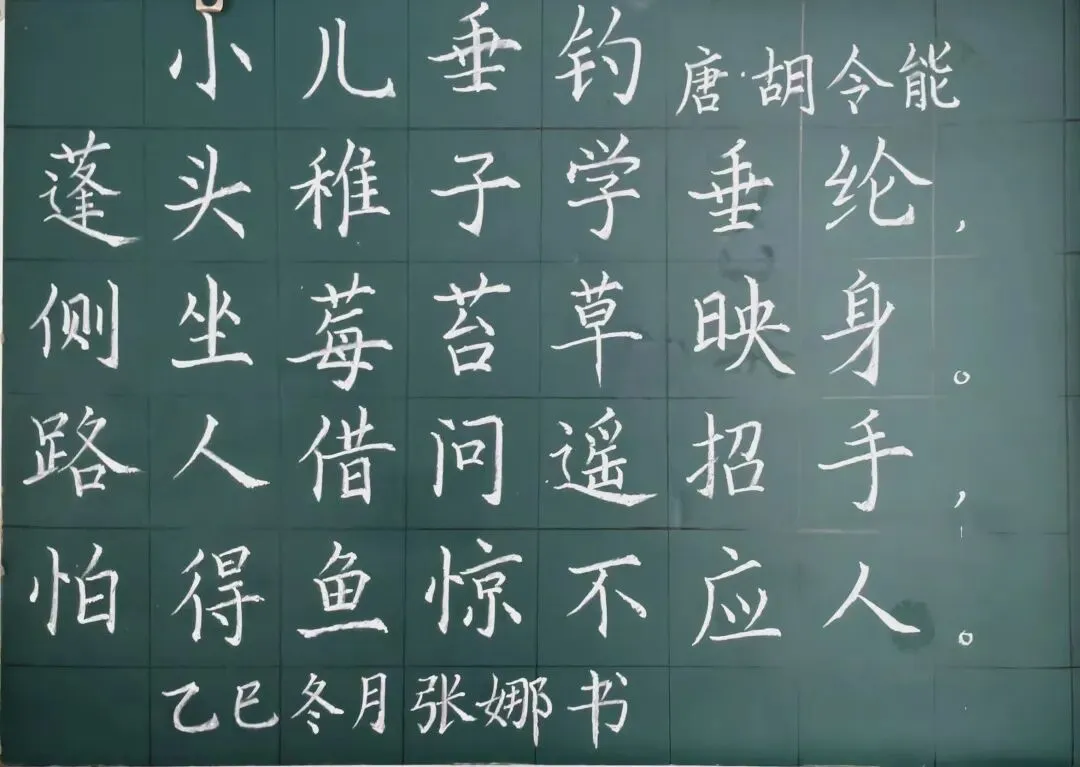 小儿垂钓 唐·胡令能
蓬头稚子学垂纶，
侧坐莓苔草映身。
路人借问遥招手，
怕得鱼惊不应人。
乙巳冬月张娜书